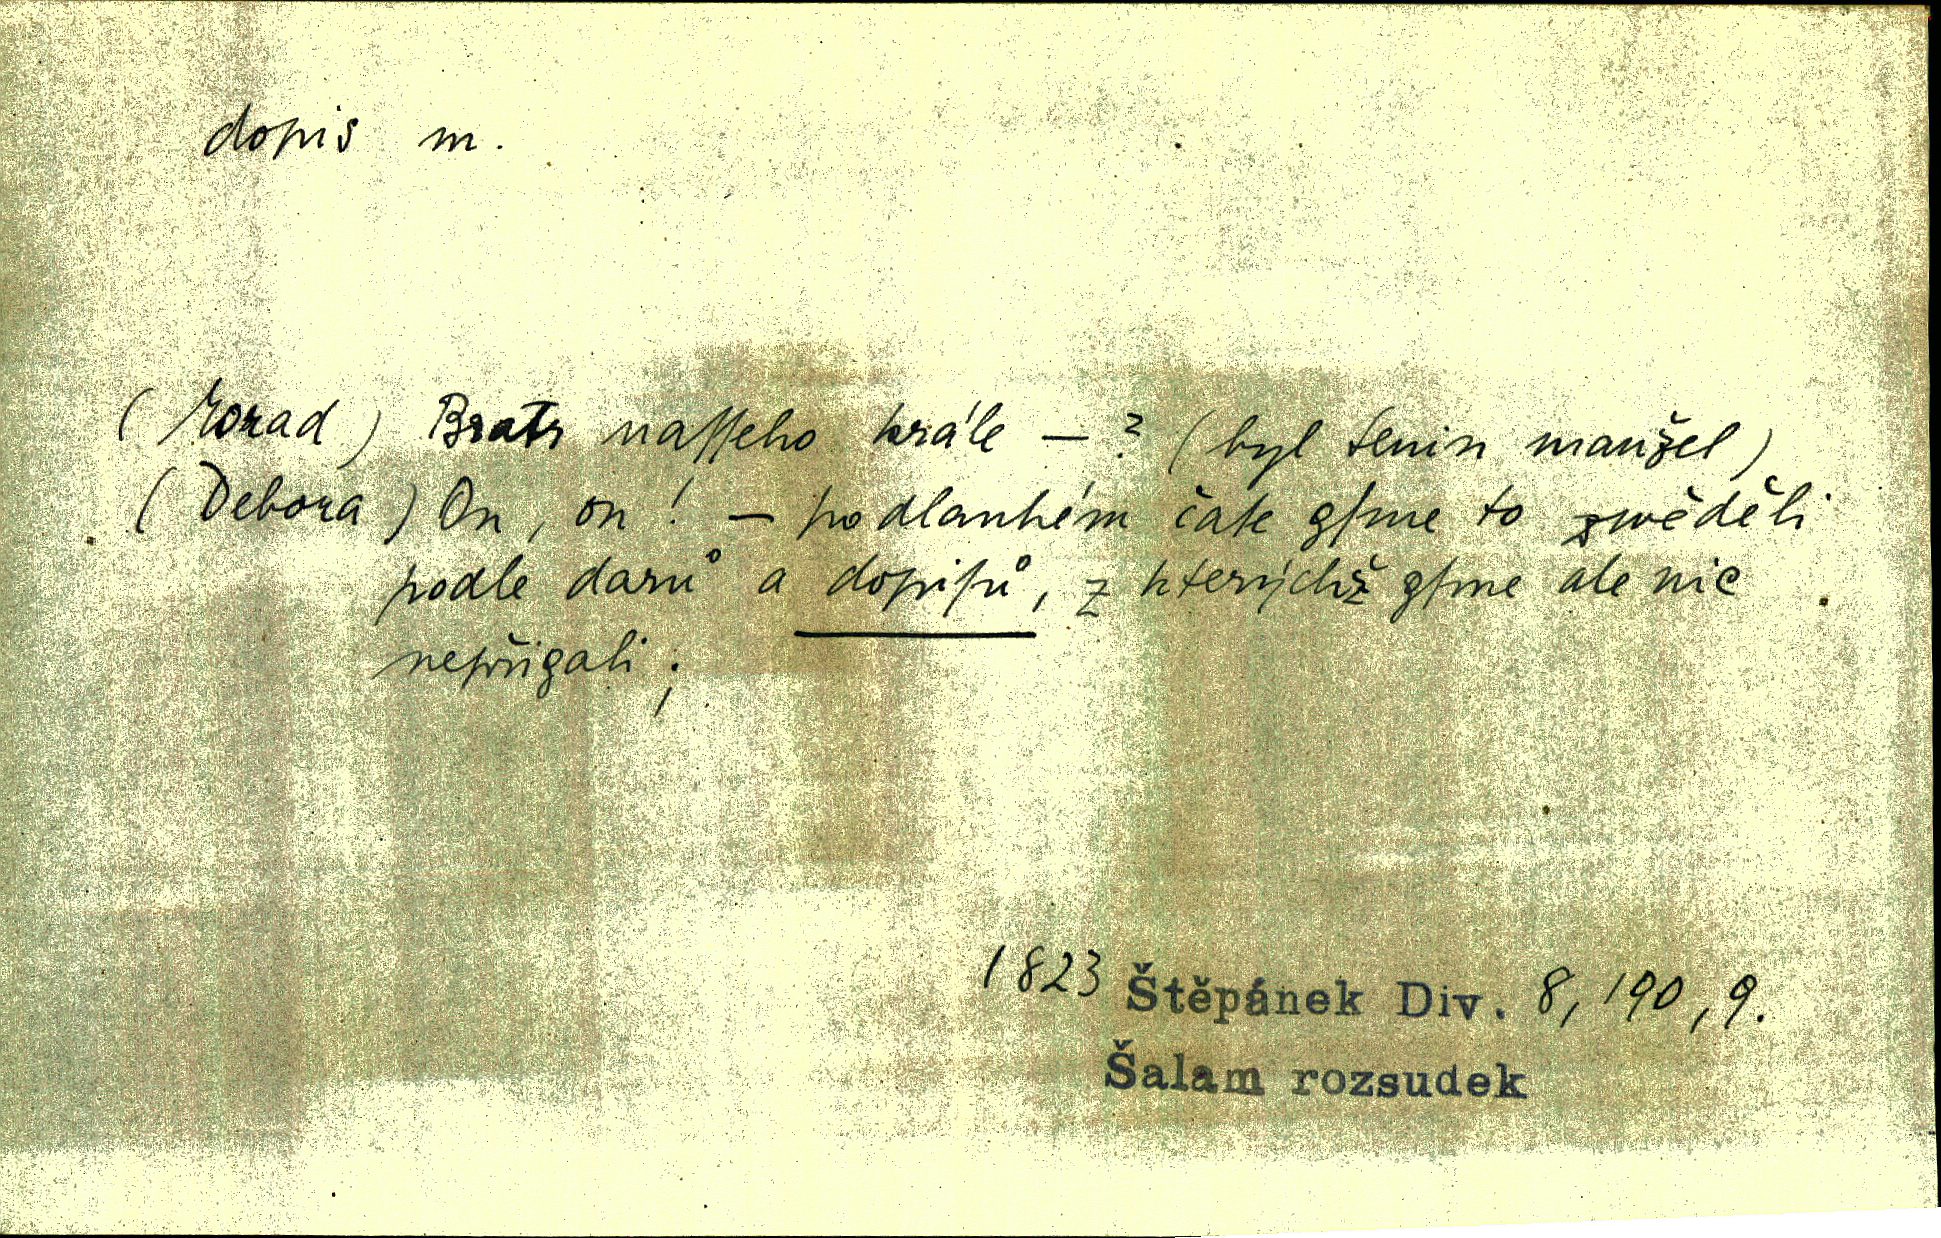 dopis m.
(Morad) Bratr naſſeho krále — ? (byl Lenin manžel)
(Debora) On, on! — po dlauhém čaſe gſme to zwěděli
podle darů a dopiſů, z kterýchž gſme ale nic
nepřigali;
1823 Štěpánek Div. 8, 190, 9.
Šalam rozsudek